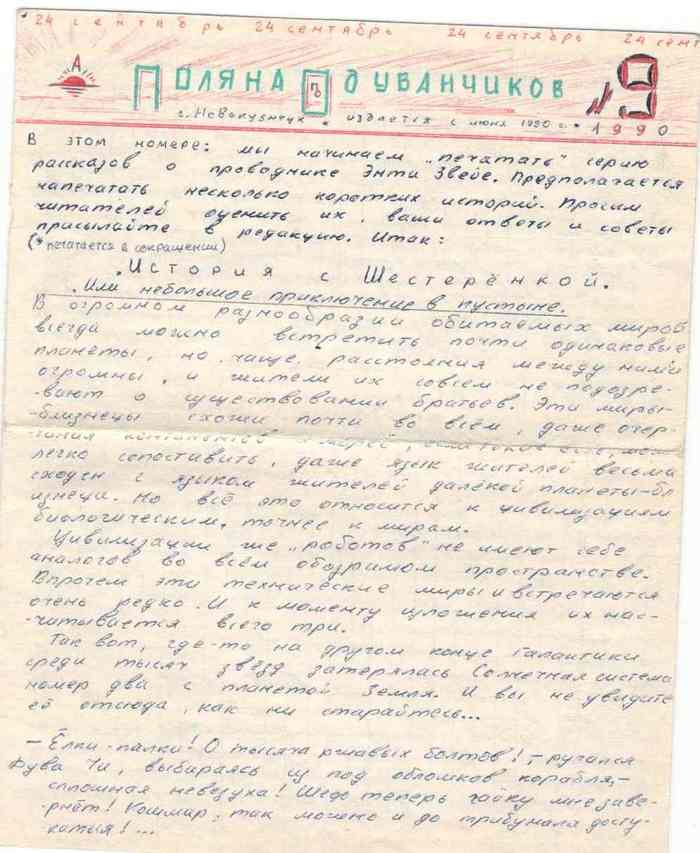 24 сентябрь 24 сентябрь 24 сентябрь 24 сент
А
Поляна Одуванчиков
по
№9
г. Новокузнецк • издаётся с июня 1990 г. • 1990
В этом номере: мы начинаем „печатать" серию
рассказов о проводнике Энти Звебе. Предполагается
напечатать несколько коротких историй. Просим
читателей оценить их, ваши ответы и советы
присылайте в редакцию. Итак:
(* печатается в сокращении)
.История с Шестерёнкой.
.Или небольшое приключение в пустыне.
В огромном разнообразии обитаемых миров
всегда можно встретить почти одинаковые
планеты, но чаще, расстояния между ними
огромны, и жители их совсем не подозре-
-вают о существовании братьев. Эти миры-
-близнецы схожи почти во всём, даже очер-
-тания континентов и морей,
легко сопоставить, даже язык жителей весьма
сходен с языком жителей далёкой планеты-бл
изнеца. Но всё это относится к цивилизациям
биологическим, точнее к мирам.
Цивилизации же „роботов" не имеют себе
аналогов во всём обозримом пространстве.
Впрочем эти технические миры и встречаются
очень редко. И к моменту изложения их нас-
-читывается всего три.
Так вот, где-то на другом конце Галактики
среди тысяч звёзд затерялась Солнечная система
номер два с планетой Земля. И вы не увидите
её отсюда, как ни старайтесь...
— Ёлки-палки! О тысяча ржавых болтов! — ругался
Фува Чи, выбираясь из под обломков корабля,—
сплошная невезуха! Шеф теперь гайку мне заве-
-рнёт! Кошмар, так можно и до трибунала досту-
-каться!...